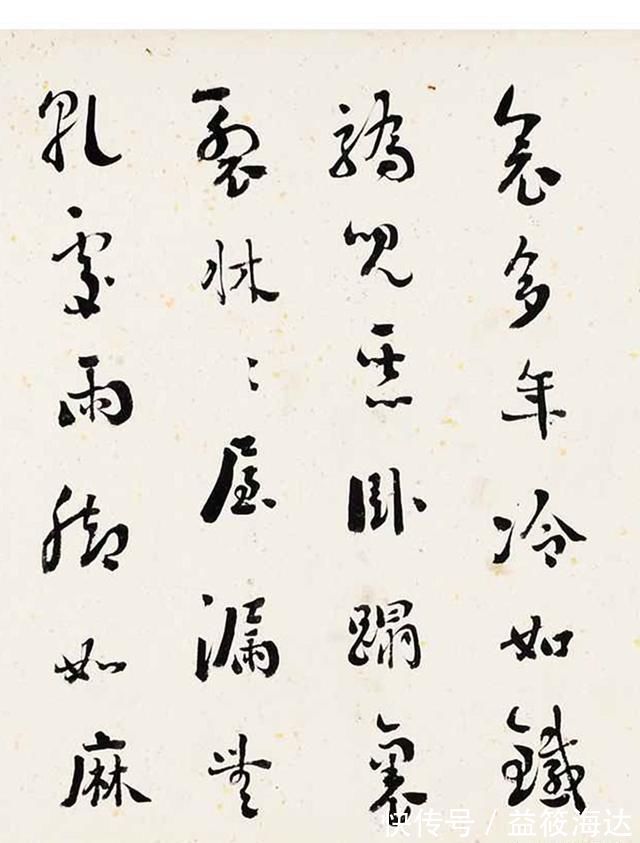 衾多年冷如鐵
驕兒惡卧蹋裏
裂牀〻屋漏無
乾處雨脚如麻
快传号 / 益筱海达